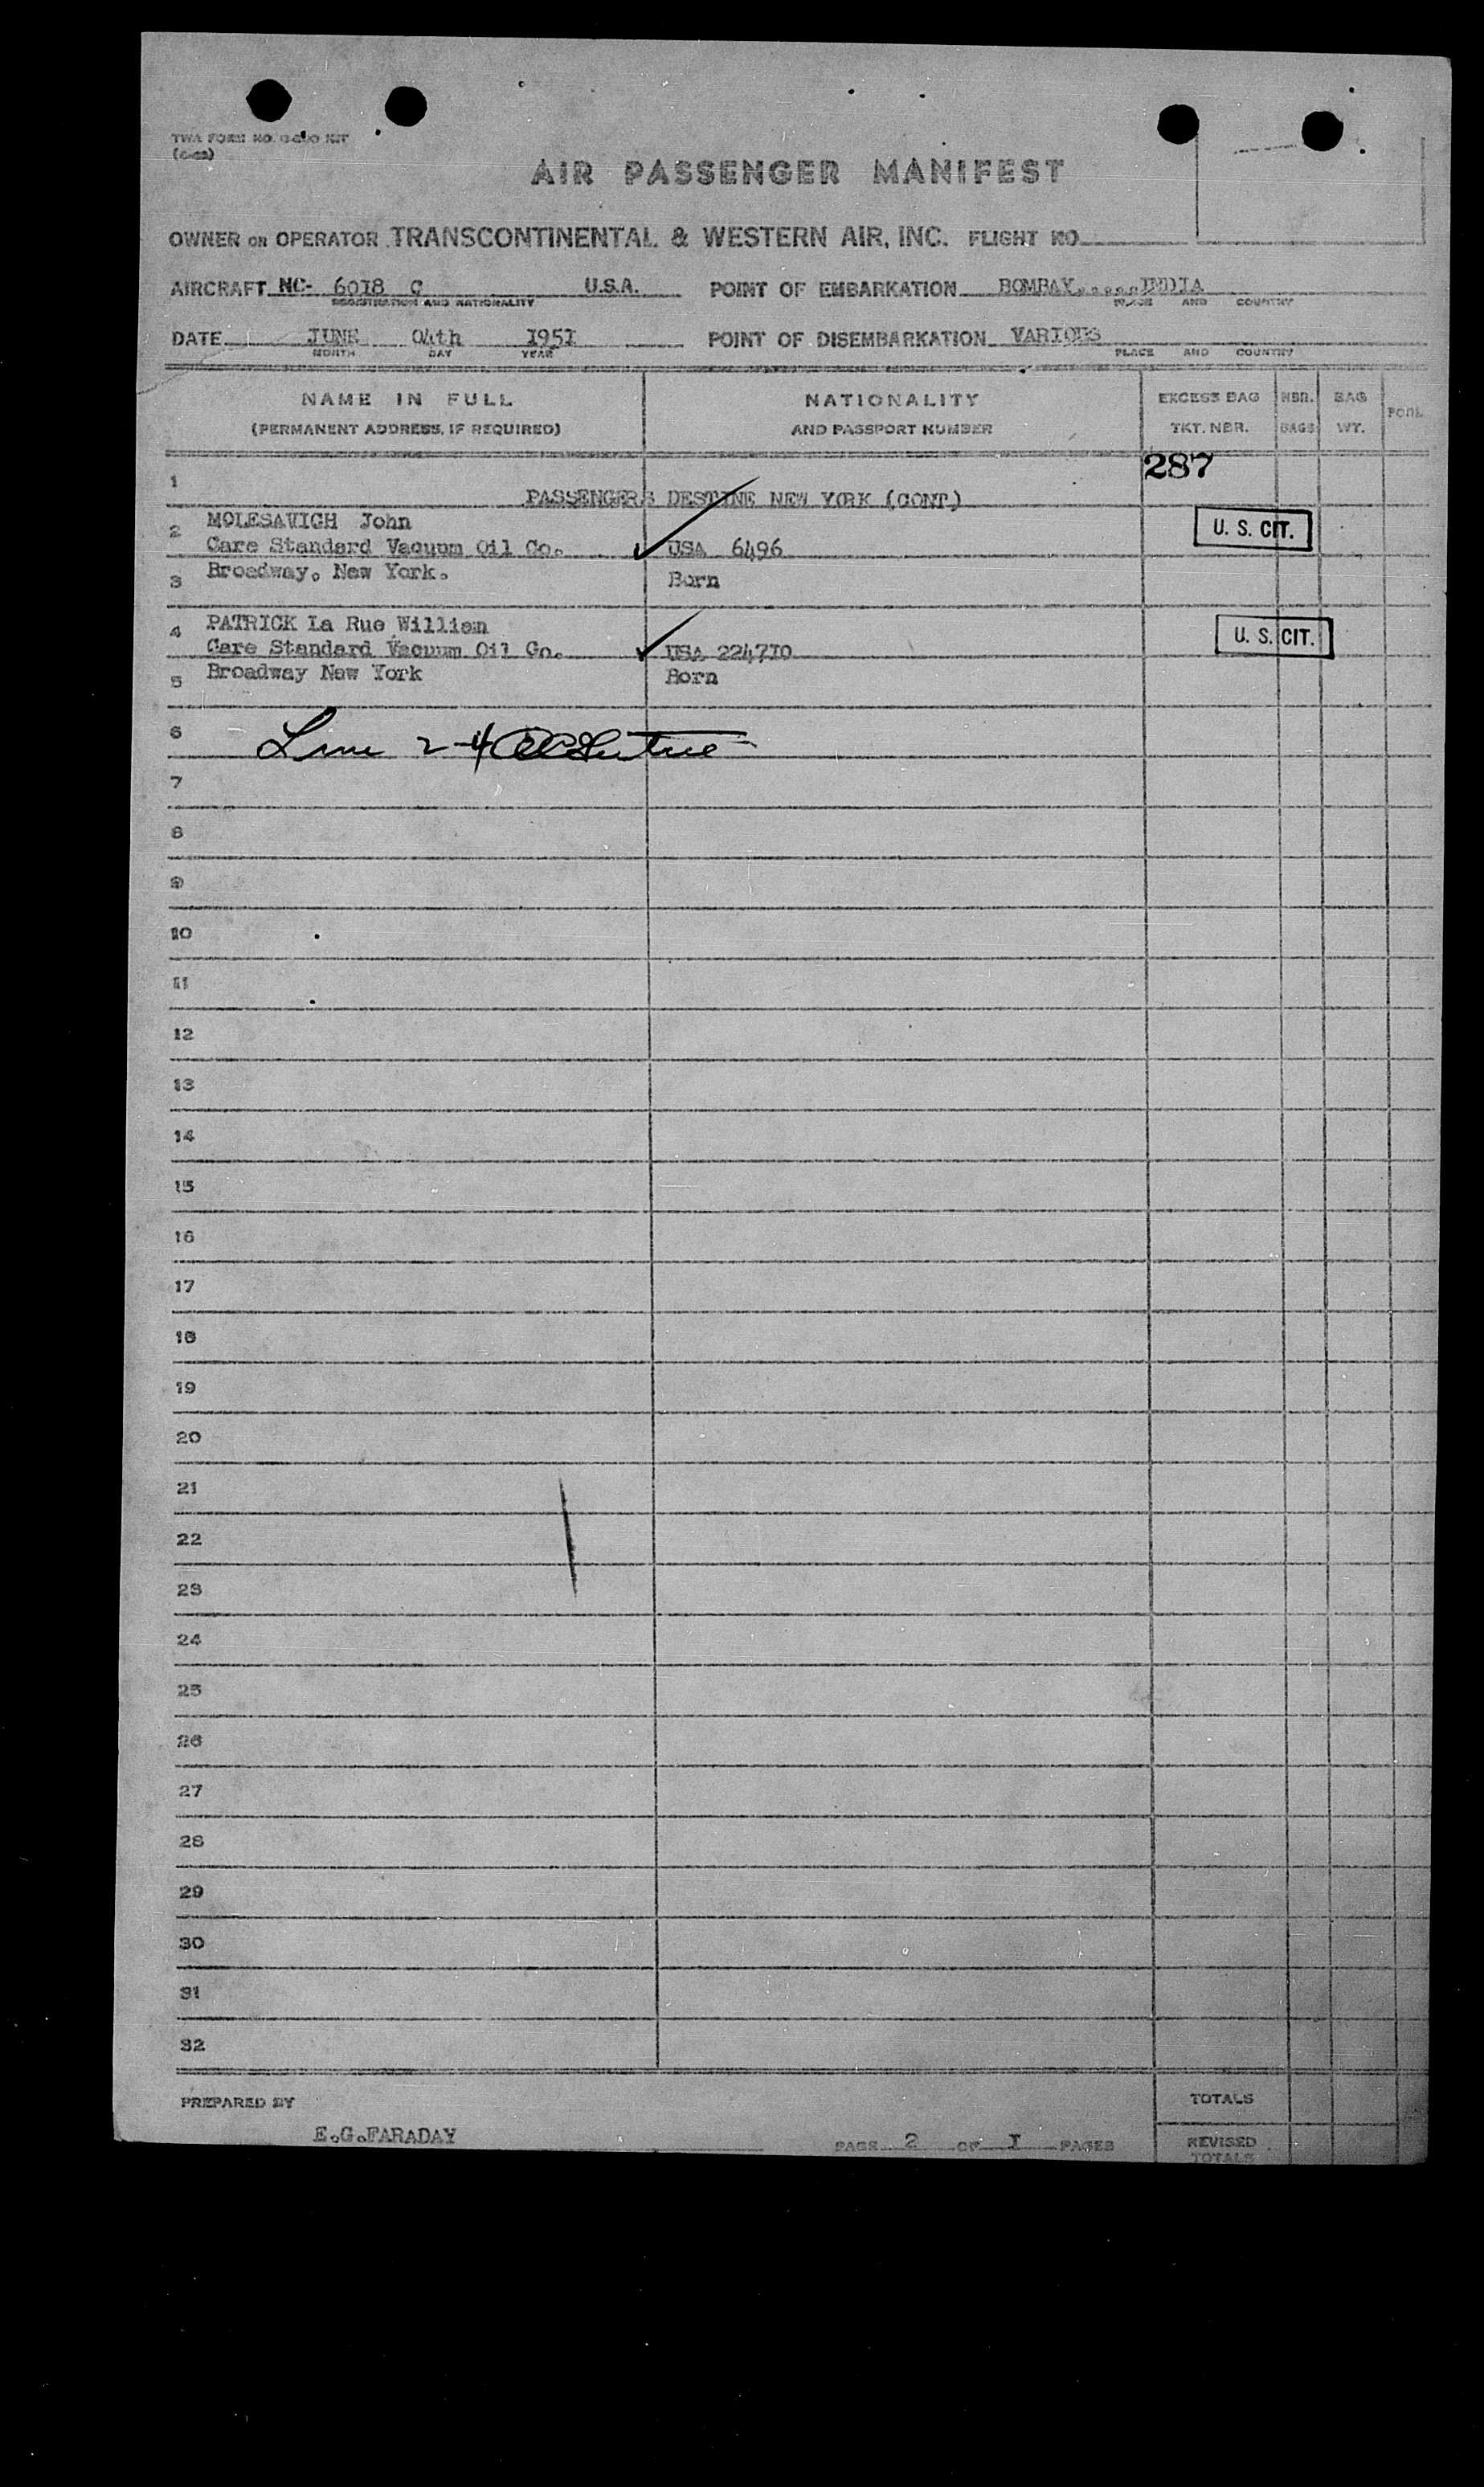 TWA FORM NO.
AIR PASSENGER MANIFEST
OWNER OR OPERATOR TRANSCONTINENTAL & WESTERN AIR, INC. FLIGHT NO
AIRCRAFT NC- 6018 C U.S.A. POINT OF EMBARKATION BOMBAY......INDIA
REGISTRATION AND NATIONALITY PLACE AND COUNTRY
DATE JUNE 04th 1951 POINT OF DISEMBARKATION VARIOUS
MONTH DAY YEAR PLACE AND COUNTRY
NAME IN FULL NATIONALITY EXCESS BAG NBR. BAG
(PERMANENT ADDRESS, IF REQUIRED) AND PASSPORT NUMBER TKT. NBR. BAGS WT.
287
1
PASSENGERS DESTINE NEW YORK (CONT)
2 MOLESAVICH John U. S. CIT.
Care Standard Vacuum Oil Co. USA 6496
3 Broadway. New York. Born
4 PATRICK La Rue William U. S. CIT.
Care Standard Vacuum Oil Co. USA 224710
5 Broadway New York Born
6 Line 2-4
7
8
9
10
11
12
13
14
15
16
17
18
19
20
21
22
23
24
25
26
27
28
29
30
31
32
PREPARED BY TOTALS
E.G.FARADAY PAGE 2 OF I PAGES REVISED
TOTALS